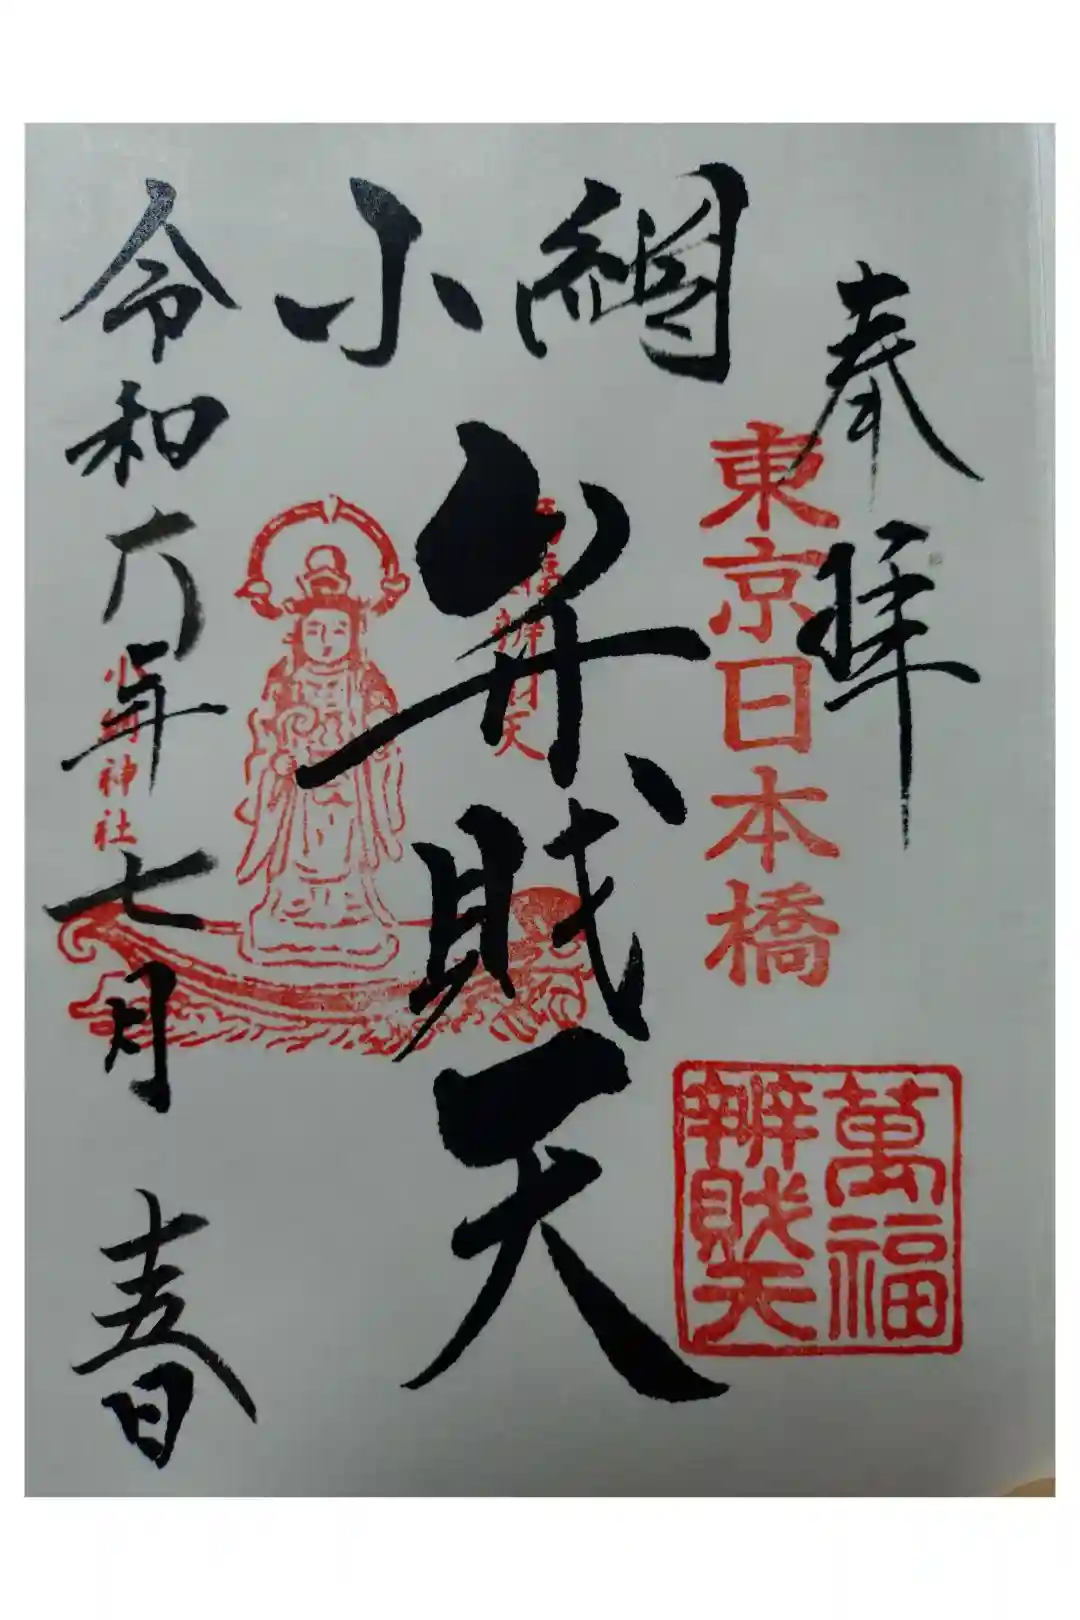 奉拝
東京日本橋
萬福
辨財天
小網
弁財天
萬福辨財天
小網神社
令和六年七月十五日